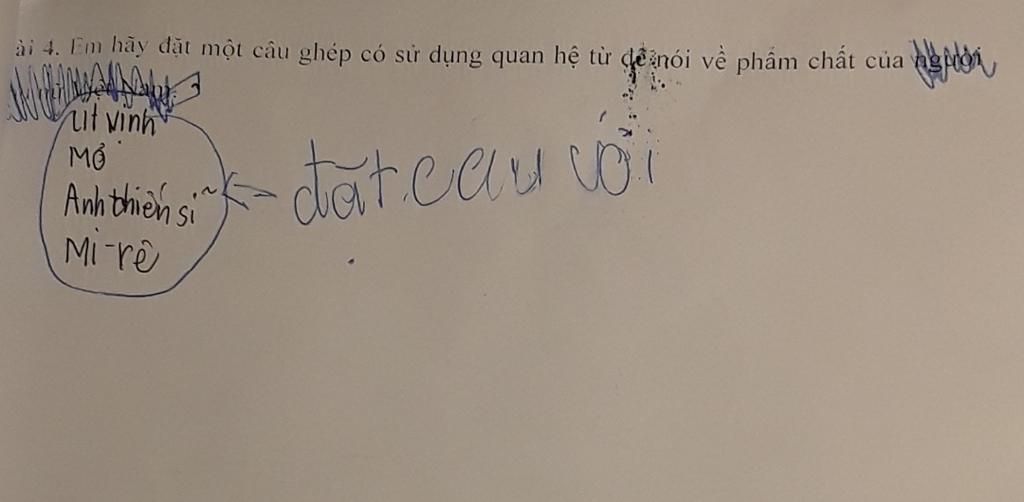 ài 4. Em hãy đặt một câu ghép có sử dụng quan hệ từ để nói về phẩm chất của người
Út Vịnh
Mơ
Anh thiến sĩ
Mi-rê
đặt câu với